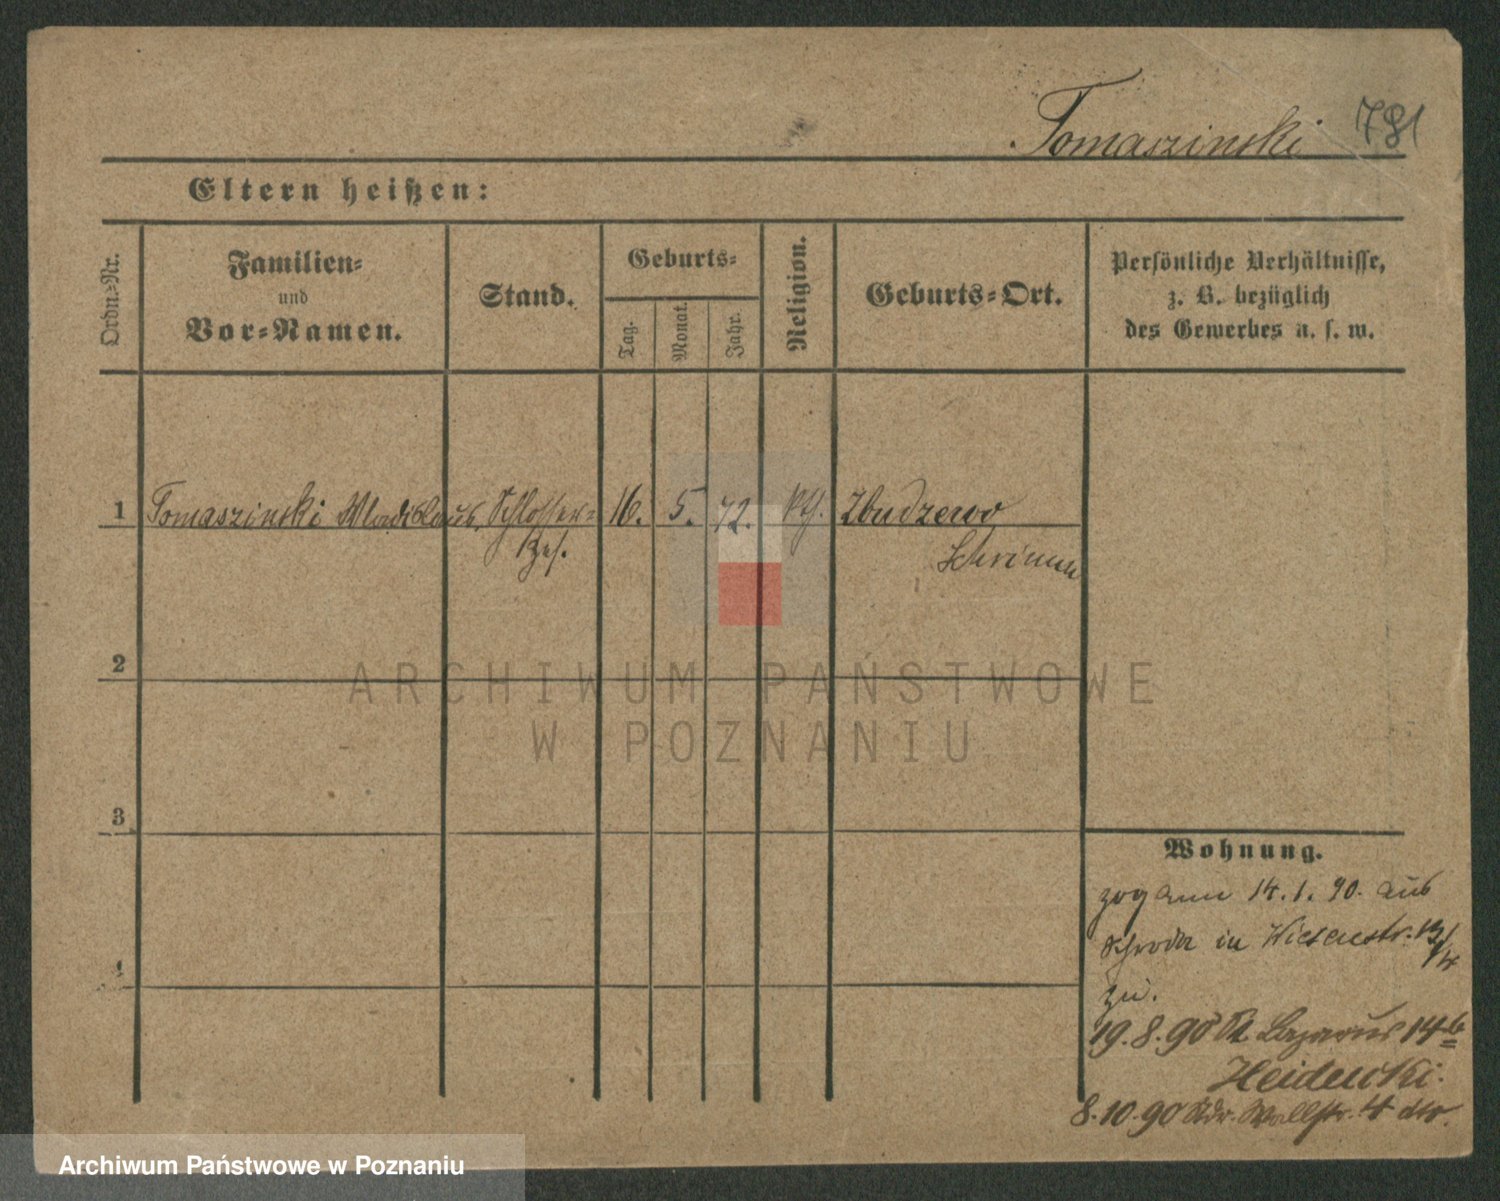 Tomaszinski 781
Eltern heißen:
Ordn.-Nr.
Familien-
und
Vor-Namen.
Stand.
Geburts-
Tag.
Monat.
Jahr.
Religion.
Geburts-Ort.
Persönliche Verhältnisse,
z. B. bezüglich
des Gewerbes u. s. w.
1 Tomaszinski Wladislaus. Schlosser- 16. 5. 72. kth. Zbudzewo
Ges. Schrimm
2
3
4
Wohnung.
zog am 14.1.90. aus
Schroda in Wiesenstr. 13/14
zu.
19.8.90 St Lazarus 14b
8.10.90 Wallstr. 4
ARCHIWUM PAŃSTWOWE
W POZNANIU
Archiwum Państwowe w Poznaniu